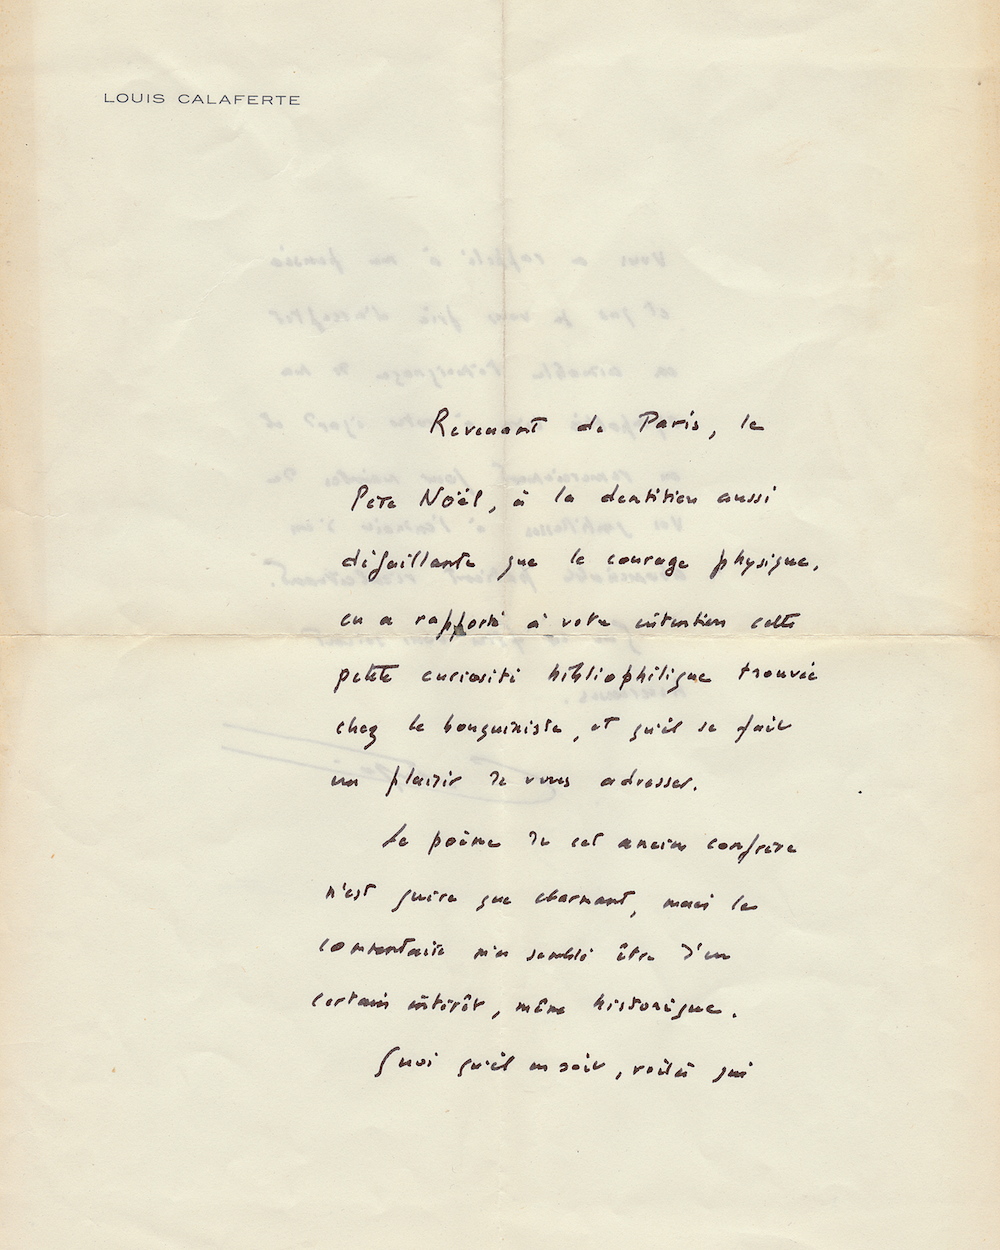 LOUIS CALAFERTE
Revenant de Paris, le
Père Noël, à la dentition aussi
défaillante que le courage physique,
en a rapporté à votre intention cette
petite curiosité bibliophilique trouvée
chez le bouquiniste, et qu'il se fait
un plaisir de vous adresser.
Le poème de cet ancien confrère
n'est guère que charmant, mais le
commentaire m'a semblé être d'un
certain intérêt, même historique.
Quoi qu'il en soit, voilà qui